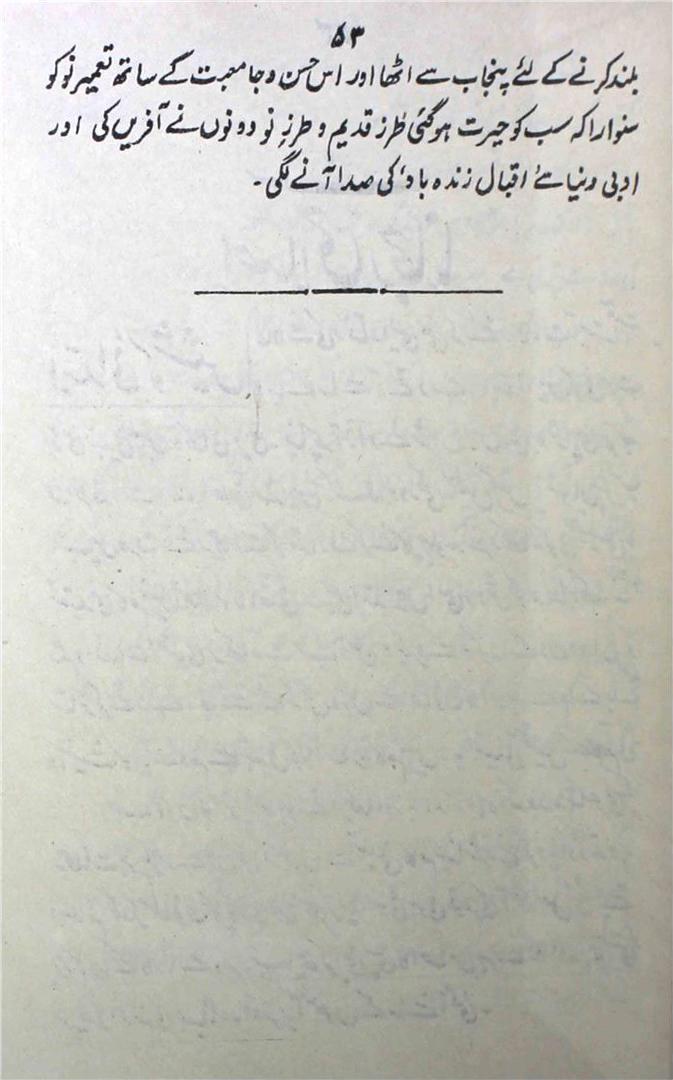 ۵۳
بلند کرنے کے لئے پنجاب سے اٹھا اور اس حسن و جامعیت کے ساتھ تعمیر نو کو
سنوارا کہ سب کو حیرت ہوگئی طرز قدیم و طرزِ نو دونوں نے آفریں کی اور
ادبی دنیا سے ’اقبال زندہ باد‘ کی صدا آنے لگی۔